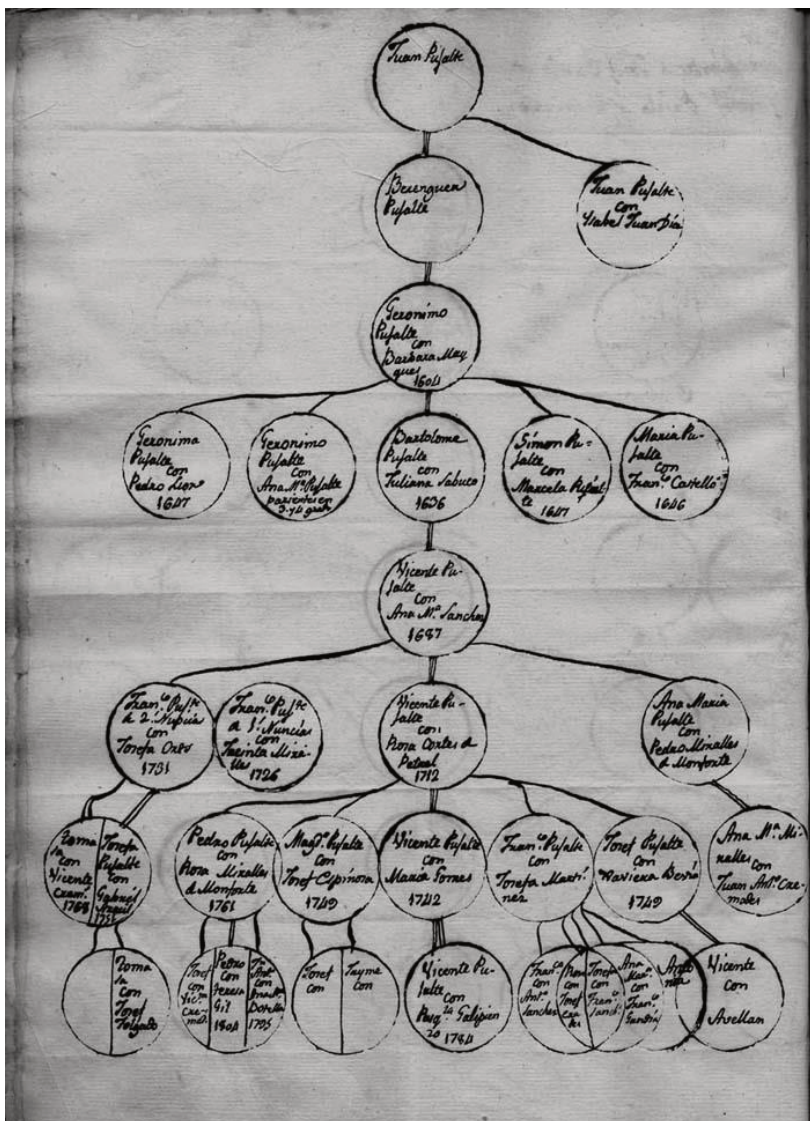 Juan Pujalte
Berenguer
Pujalte
Juan Pujalte
con
Ysabel Juan Día
Geronimo
Pujalte
con
Barbara May
ques
1604
Geronima
Pujalte
con
Pedro
1647
Geronimo
Pujalte
con
Ana Mª Pujalte
parientes en
3. y 4 grado
Bartolome
Pujalte
con
Juliana Sabuco
1636
Simon Pu-
jalte
con
Marcela Pujal
te
1647
Maria Pu-
jalte
con
Franco Castelló
1646
Vicente Pu-
jalte
con
Ana Mª Sanchez
1687
Franco Pujte
a 2ª Nupcia
con
Josefa
1731
Franco Pujte
a 1ª Nuncias
con
Jacinta Mira-
lles
1726
Vicente Pu-
jalte
con
Rosa Cortes d
Petrel
1712
Ana Maria
Pujalte
con
Pedro Miralles
d Monforte
Toma
sa
con
Vicente
1768
Josefa
Pujalte
con
Gabriel
Pedro Pujalte
con
Rosa Miralles
d Monforte
1761
Magda Pujalte
con
Josef Espinosa
1749
Vicente Pujalte
con
Maria Gomes
1742
Franco Pujalte
con
Josefa Marti
nez
Josef Pujalte
con
Xaviera
1749
Ana Mª Mi-
ralles
con
Juan Anto Cre-
mades
Toma
sa
con
Josef
Josef
con
Pedro
con
Teresa
Gil
1804
con
1795
Josef
con
Jayme
con
Vicente Pu-
jalte
con
1784
Franca
con
Anto
Sanches
Rosa
con
Josef
Josefa
con
Franco
Ana
con
Franco
Vicente
con
Avellan